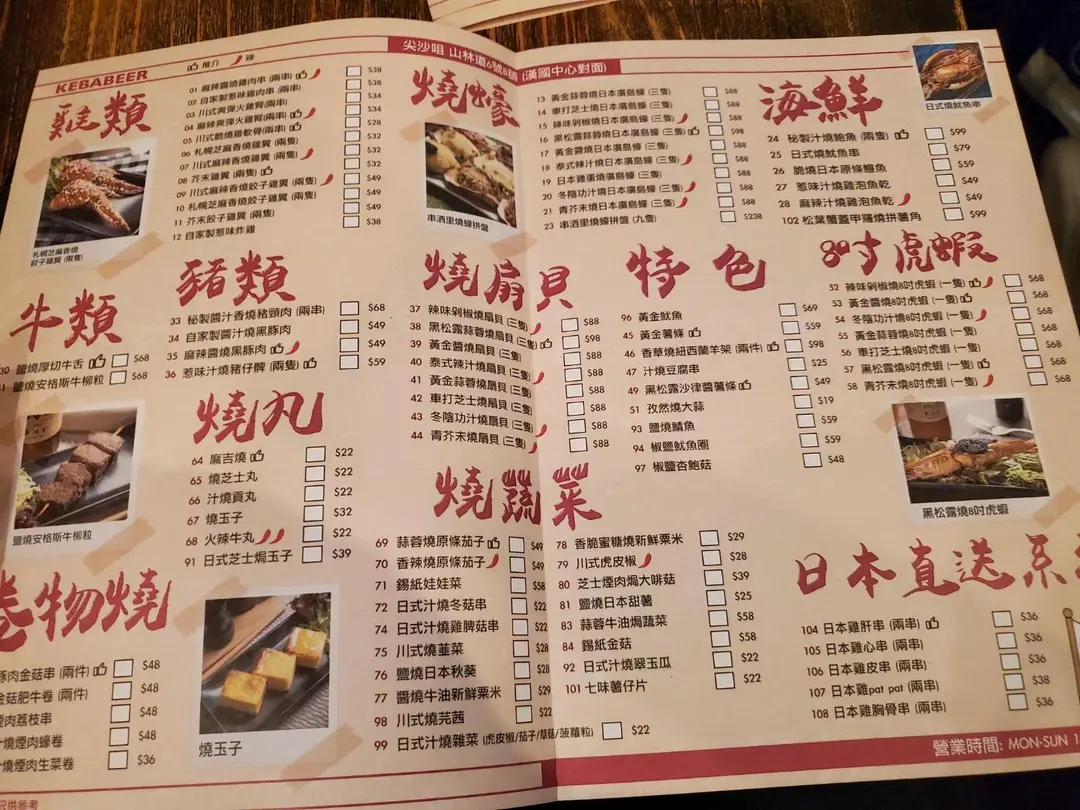 KEBABEER
推介 辣
尖沙咀 山林道6號8舖 (漢國中心對面)
雞類
01 麻辣醬燒雞肉串 (兩串) $38
02 自家製惹味雞肉串 (兩串) $38
03 川式爽彈火雞腎(兩串) $34
04 麻辣爽彈火雞腎(兩串) $34
05 川式脆燒雞軟骨(兩串) $28
06 札幌芝麻香燒雞翼 (兩隻) $32
07 川式麻辣香燒雞翼 (兩隻) $32
08 芥末雞翼 (兩隻) $32
09 川式麻辣香燒餃子雞翼 (兩隻) $49
10 札幌芝麻香燒餃子雞翼 (兩隻) $49
11 芥末餃子雞翼 (兩隻) $49
12 自家製惹味炸雞 $38
札幌芝麻香燒
餃子雞翼 (兩隻)
牛類
30 鹽燒厚切牛舌 $68
鹽燒安格斯牛柳粒 $68
鹽燒安格斯牛柳粒
豬類
33 秘製醬汁香燒豬頸肉 (兩串) $68
34 自家製醬汁燒黑豚肉 $49
35 麻辣醬燒黑豚肉 $49
36 惹味汁燒豬仔髀 (兩隻) $59
燒丸
64 麻吉燒 $22
65 燒芝士丸 $22
66 汁燒貢丸 $22
67 燒玉子 $32
68 火辣牛丸 $22
91 日式芝士焗玉子 $39
卷物燒
豚肉金菇串 (兩件) $48
金菇肥牛卷 (兩件) $48
煙肉荔枝串 $48
汁燒煙肉蠔卷 $48
汁燒煙肉生菜卷 $36
燒玉子
只供參考
燒蠔
串酒里燒蠔拼盤
13 黃金蒜蓉燒日本廣島蠔 (三隻) $88
14 車打芝士燒日本廣島蠔 (三隻) $88
15 辣味剁椒燒日本廣島蠔 (三隻) $88
16 黑松露蒜蓉燒日本廣島蠔 (三隻) $98
17 黃金醬燒日本廣島蠔 (三隻) $88
18 泰式辣汁燒日本廣島蠔 (三隻) $88
19 日本雞蛋燒廣島蠔 (三隻) $88
20 冬陰功汁燒日本廣島蠔 (三隻) $88
21 青芥末燒日本廣島蠔 (三隻) $88
23 串酒里燒蠔拼盤 (九隻) $238
海鮮
日式燒魷魚串
24 秘製汁燒鮑魚 (兩隻) $99
25 日式燒魷魚串 $79
26 脆燒日本原條鱔魚 $59
27 惹味汁燒雞泡魚乾 $49
28 麻辣汁燒雞泡魚乾 $49
102 松葉蟹蓋甲羅燒拼薯角 $99
燒扇貝
37 辣味剁椒燒扇貝 (三隻) $88
38 黑松露蒜蓉燒扇貝 (三隻) $98
39 黃金醬燒扇貝 (三隻) $88
40 泰式辣汁燒扇貝 (三隻) $88
41 黃金蒜蓉燒扇貝 (三隻) $88
42 車打芝士燒扇貝 (三隻) $88
43 冬陰功汁燒扇貝 (三隻) $88
44 青芥末燒扇貝 (三隻) $88
特色
96 黃金魷魚 $69
45 黃金薯條 $59
46 香草燒紐西蘭羊架 (兩件) $98
47 汁燒豆腐串 $25
49 黑松露沙律醬薯條 $49
51 孜然燒大蒜 $19
93 鹽燒鯖魚 $59
94 椒鹽魷魚圈 $59
97 椒鹽杏鮑菇 $48
8吋虎蝦
52 辣味剁椒燒8吋虎蝦 (一隻) $68
53 黃金醬燒8吋虎蝦 (一隻) $68
54 冬陰功汁燒8吋虎蝦 (一隻) $68
55 黃金蒜蓉燒8吋虎蝦 (一隻) $68
56 車打芝士燒8吋虎蝦 (一隻) $68
57 黑松露燒8吋虎蝦 (一隻) $68
58 青芥末燒8吋虎蝦 (一隻) $68
黑松露燒8吋虎蝦
燒蔬菜
69 蒜蓉燒原條茄子 $49
70 香辣燒原條茄子 $49
71 錫紙娃娃菜 $58
72 日式汁燒冬菇串 $22
74 日式汁燒雞脾菇串 $22
75 川式燒韮菜 $28
76 鹽燒日本秋葵 $28
77 醬燒牛油新鮮粟米 $29
98 川式燒芫茜 $22
99 日式汁燒雜菜 (虎皮椒/茄子/草菇/菠蘿粒) $22
78 香脆蜜糖燒新鮮粟米 $29
79 川式虎皮椒 $28
80 芝士煙肉焗大啡菇 $39
81 鹽燒日本甜薯 $25
83 蒜蓉牛油焗蔬菜 $58
84 錫紙金菇 $58
92 日式汁燒翠玉瓜 $22
101 七味薯仔片 $22
日本直送系
104 日本雞肝串 (兩串) $36
105 日本雞心串 (兩串) $36
106 日本雞皮串 (兩串) $36
107 日本雞pat pat (兩串) $38
108 日本雞胸骨串 (兩串) $36
營業時間: MON-SUN 1